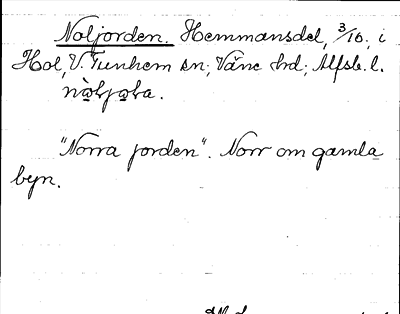 Noljorden. Hemmansdel, 3/16, i
Hol, V. Tunhem sn; Väne hd; Älfsb. l.
"Norra jorden". Norr om gamla
byn.